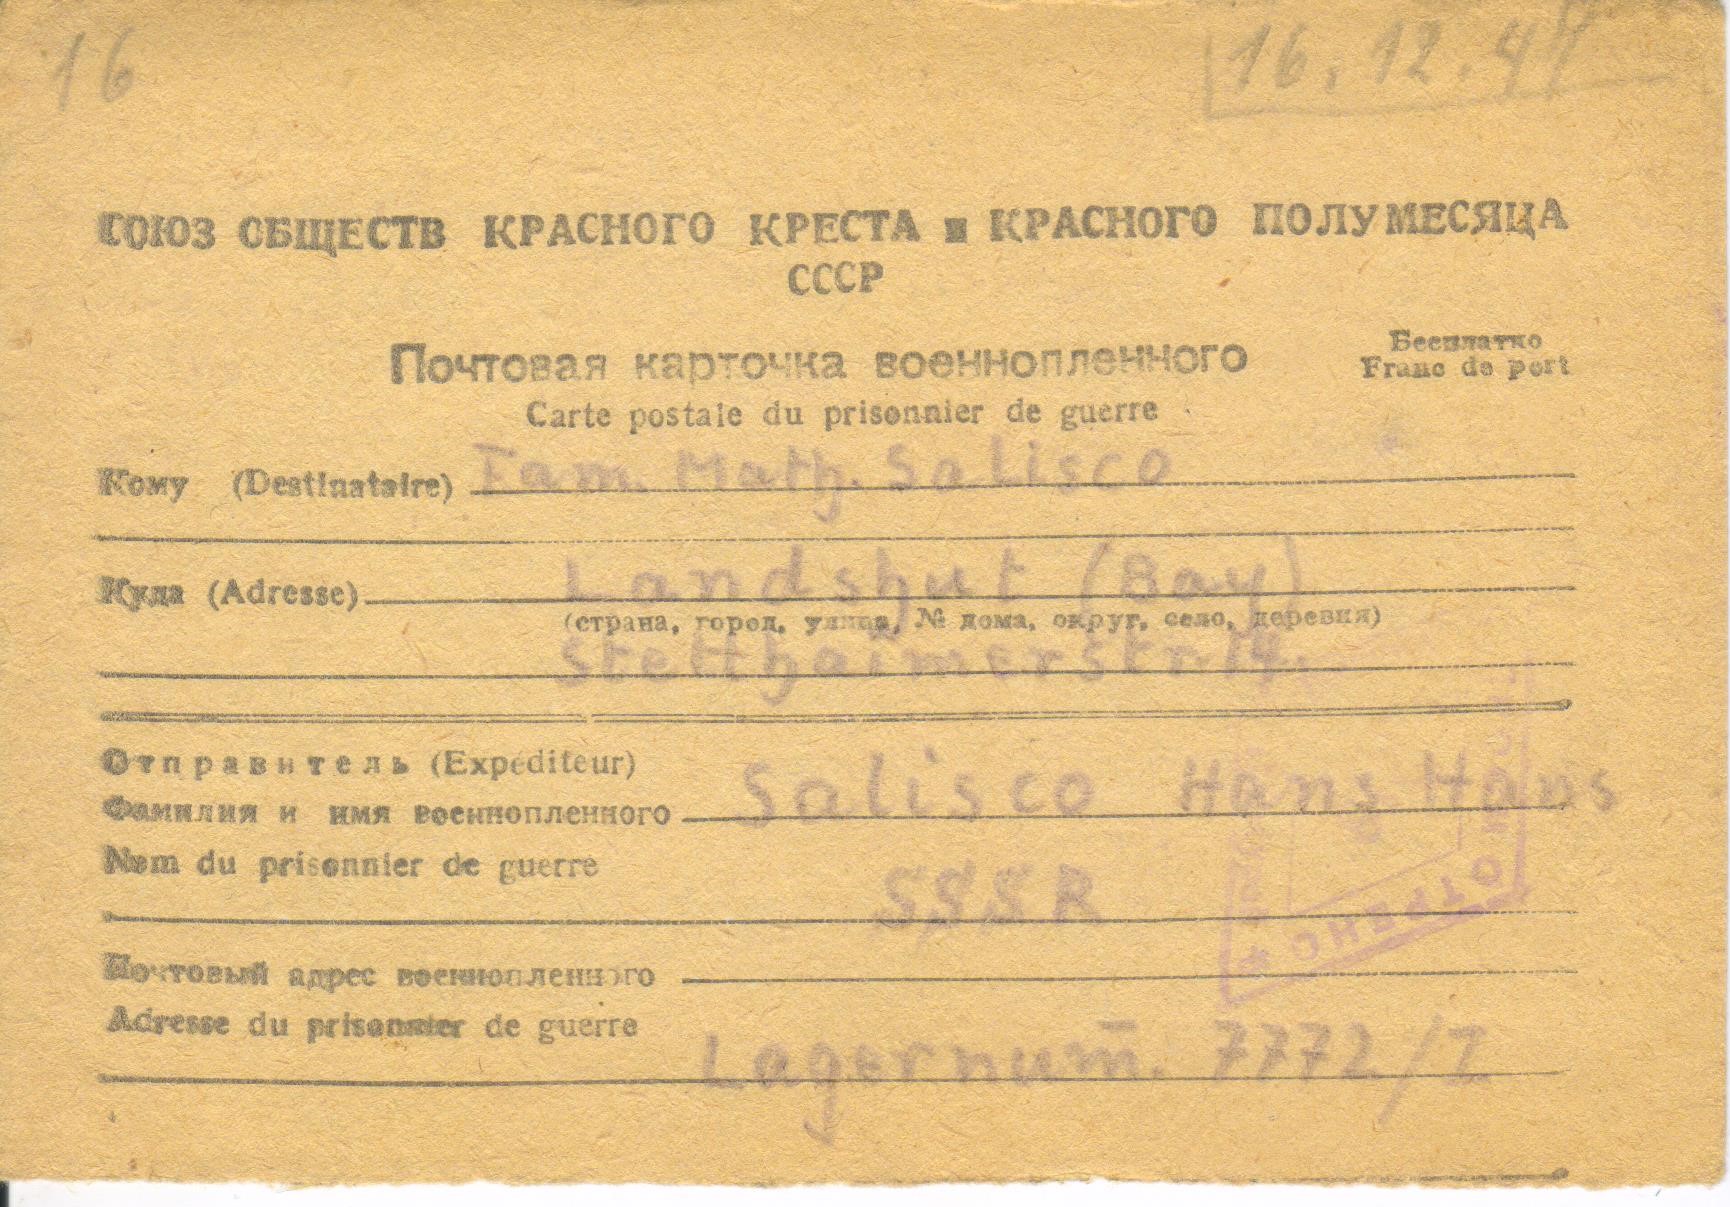 16
16.12.47
СОЮЗ ОБЩЕСТВ КРАСНОГО КРЕСТА и КРАСНОГО ПОЛУМЕСЯЦА
СССР
Почтовая карточка военнопленного
Бесплатно
Franc de port
Carte postale du prisonnier de guerre
Кому (Destinataire) Fam. Math. Salisco
Куда (Adresse) Landshut (Bay)
(страна, город, улица, № дома, округ, село, деревня)
Stetthaimerstr. 14.
Отправитель (Expéditeur)
Фамилия и имя военнопленного Salisco Hans Hans
Nom du prisonnier de guerre
SSSR
Почтовый адрес военнопленного
Adresse du prisonnier de guerre
Lagernum̄. 7772/I